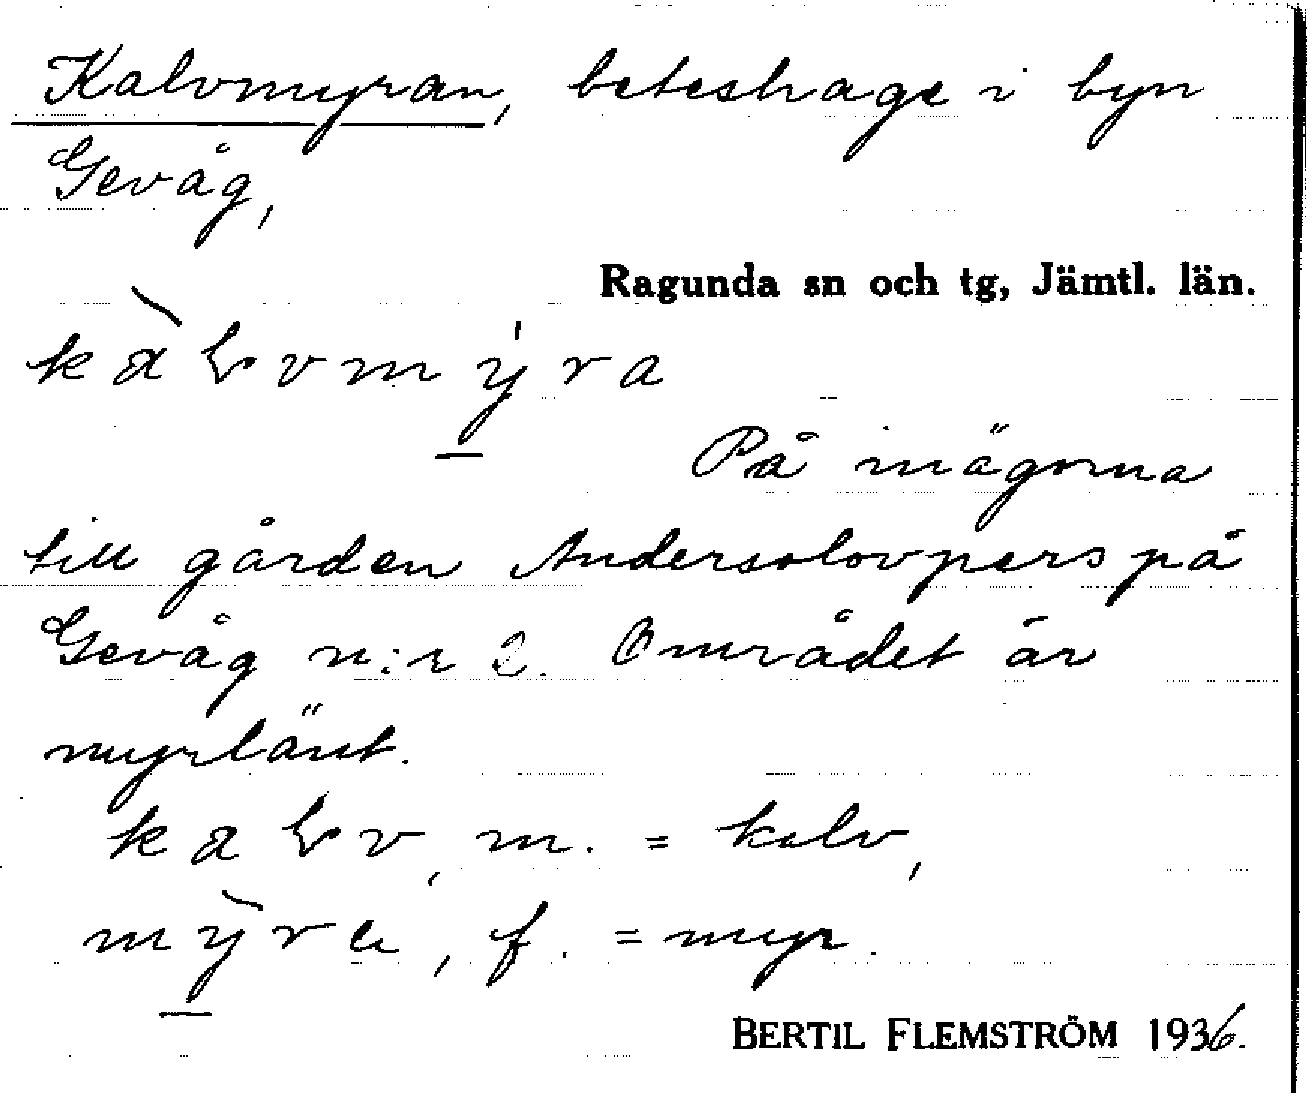 Kalvmyran, beteshage i byn
Gevåg,
Ragunda sn och tg, Jämtl. län.
kàḷvmýra
På inägorna
till gården Andersolovpers på
Gevåg n:r 2. Området är
myrlänt.
kaḷv, m. = kalv,
mỳra, f. = myr.
BERTIL FLEMSTRÖM 1936.